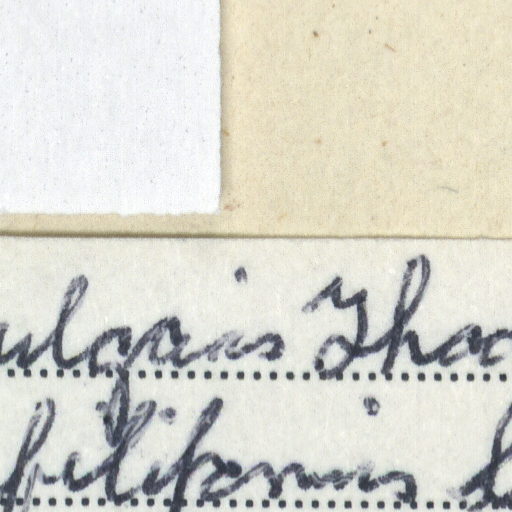 ulgaris Thoo
filiformis L